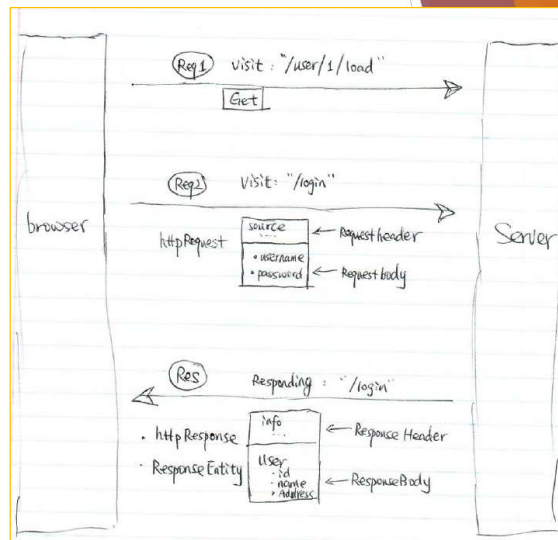 Req1 visit: "/user/1/load"
Get
Req2 visit: "/login"
browser
Server
httpRequest
source
...
• username
• password
Requestheader
Requestbody
Res Responding: "/login"
• httpResponse
• ResponseEntity
info
...
User
• id
• name
• Address
Response Header
ResponseBody